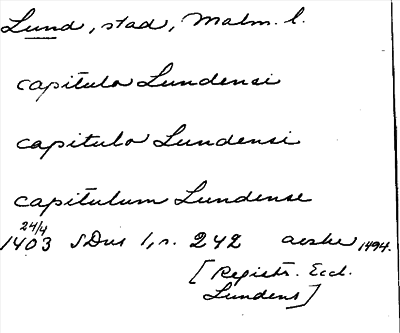 Lund, stad, Malm. l.
capitulo Lundensi
capitulo Lundensi
capitulum Lundense
24/4
1403 SDns 1, s. 242 aeske 1494.
[Registr. Eccl.
Lundens]